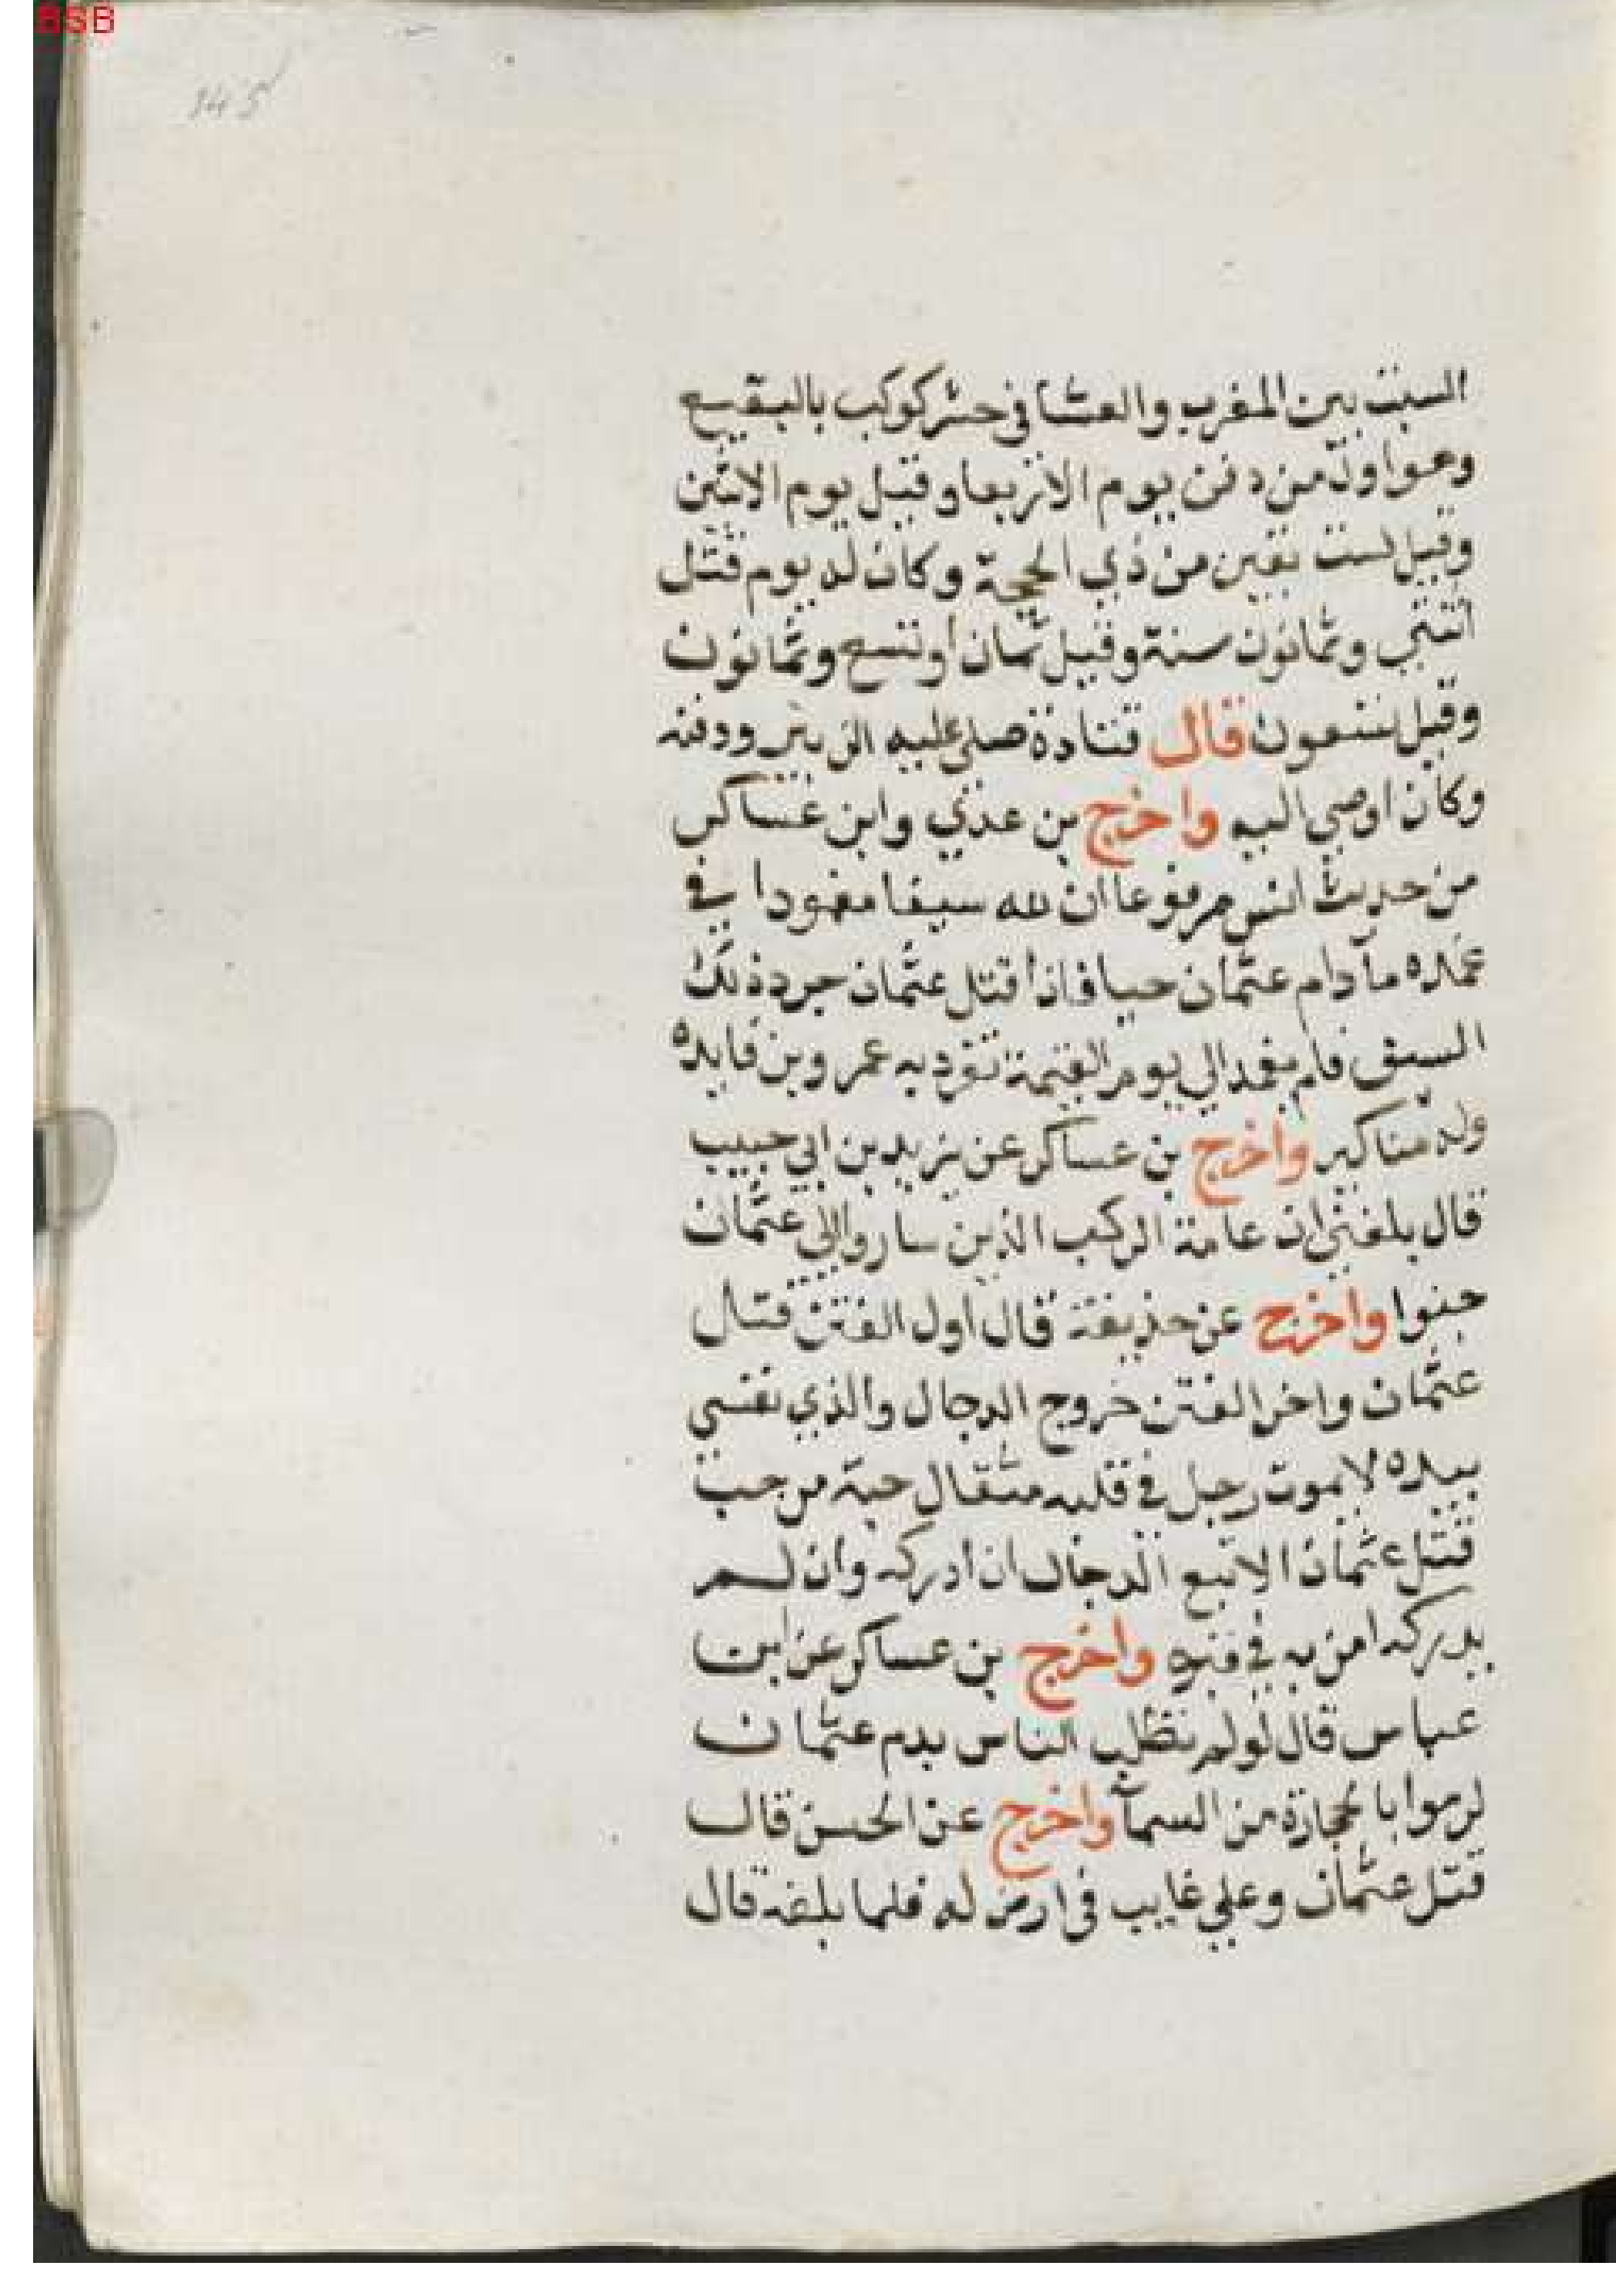 BSB
145
السبت بين المغرب والعشا في حش كوكب بالبقيع
وهو اول من دفن يوم الاربعا وقيل يوم الاثنين
وقيل لست بقين من ذي الحجة وكان له يوم قتل
اثنتي وثمانون سنة وقيل ثمان او تسع وثمانون
وقيل تسعون قال قتادة صلى عليه الزبير ودفنه
وكان اوصي اليه واخرج بن عدي وابن عساكر
من حديث انس مرفوعا ان لله سيفا مغمودا في
غمده ما دام عثمان حيا فاذا قتل عثمان جرد ذلك
السيف فلم يغمد الي يوم القيمة تفرد به عمرو بن فايده
وله مناكير واخرج بن عساكر عن يزيد بن ابي حبيب
قال بلغني ان عامة الركب الذين ساروا الي عثمان
جنوا واخرج عن حذيفة قال اول الفتن قتال
عثمان واخر الفتن خروج الدجال والذي نفسي
بيده لا يموت رجل في قلبه مثقال حبة من حب
قتل عثمان الا تبع الدجال ان ادركه وان لم
يدركه امن به في قبره واخرج بن عساكر عن ابن
عباس قال لو لم تطلب الناس بدم عثمان
لرموا بالحجارة من السمآ واخرج عن الحسن قال
قتل عثمان وعلي غايب في ارض له فلما بلغه قال